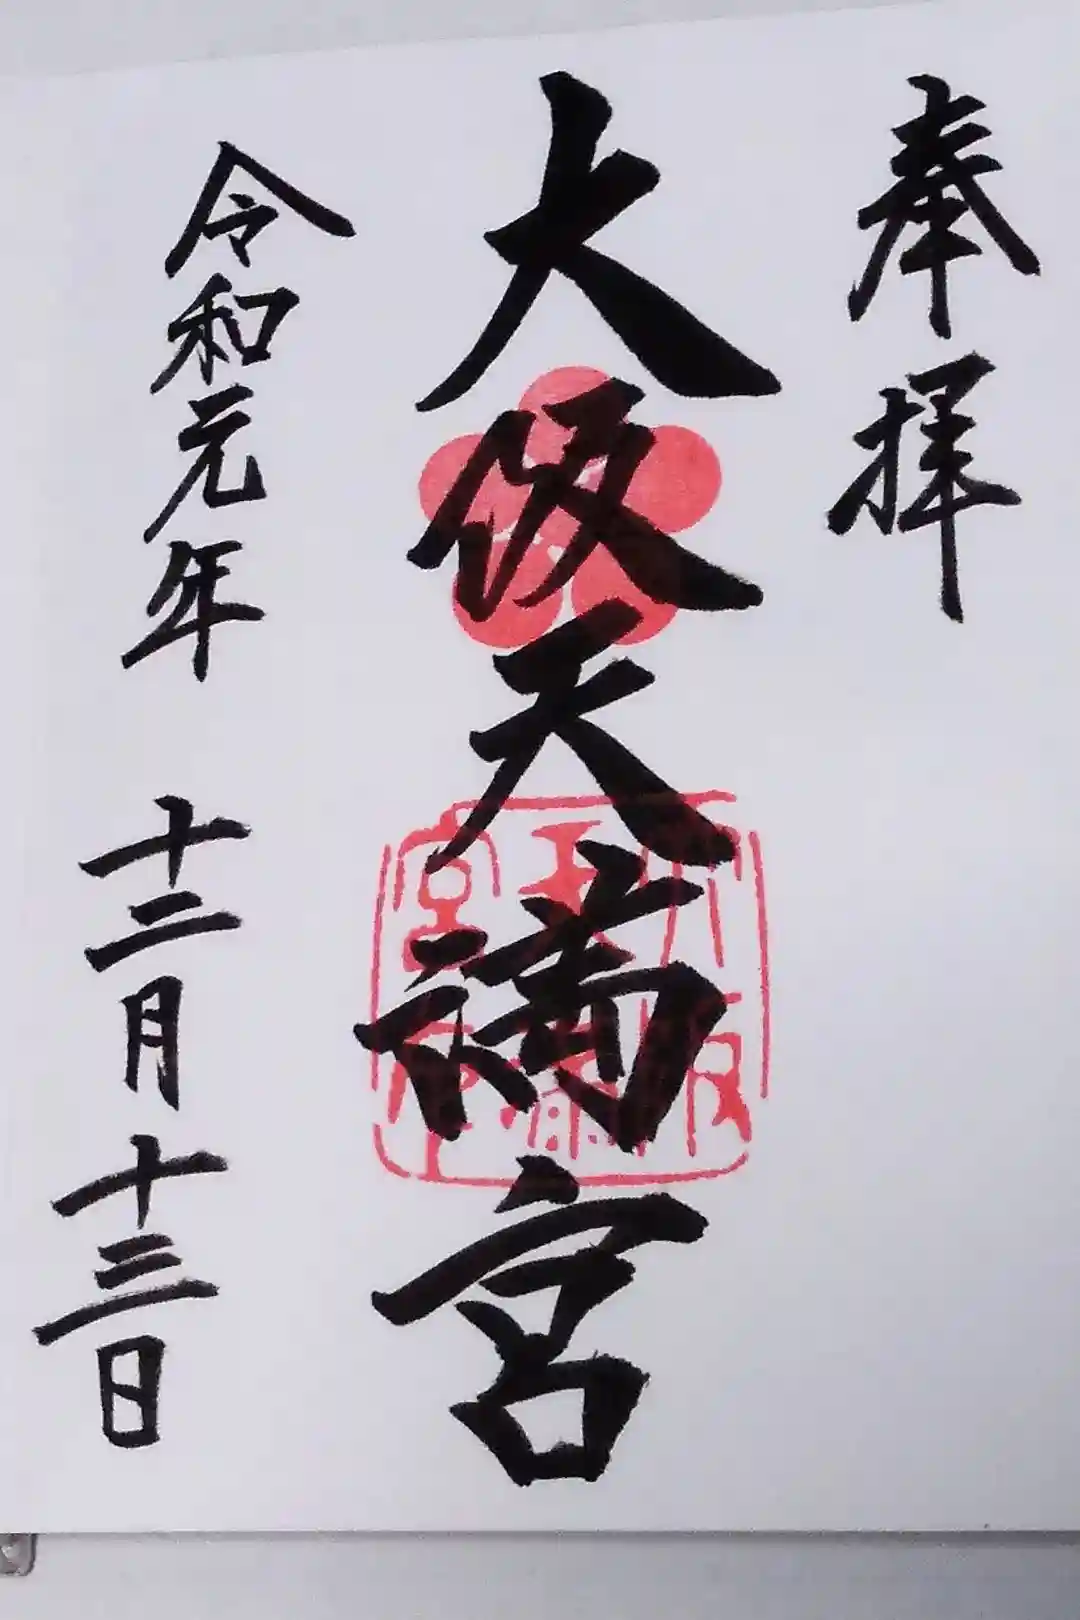 奉拝
大阪天満宮
令和元年 十二月十三日